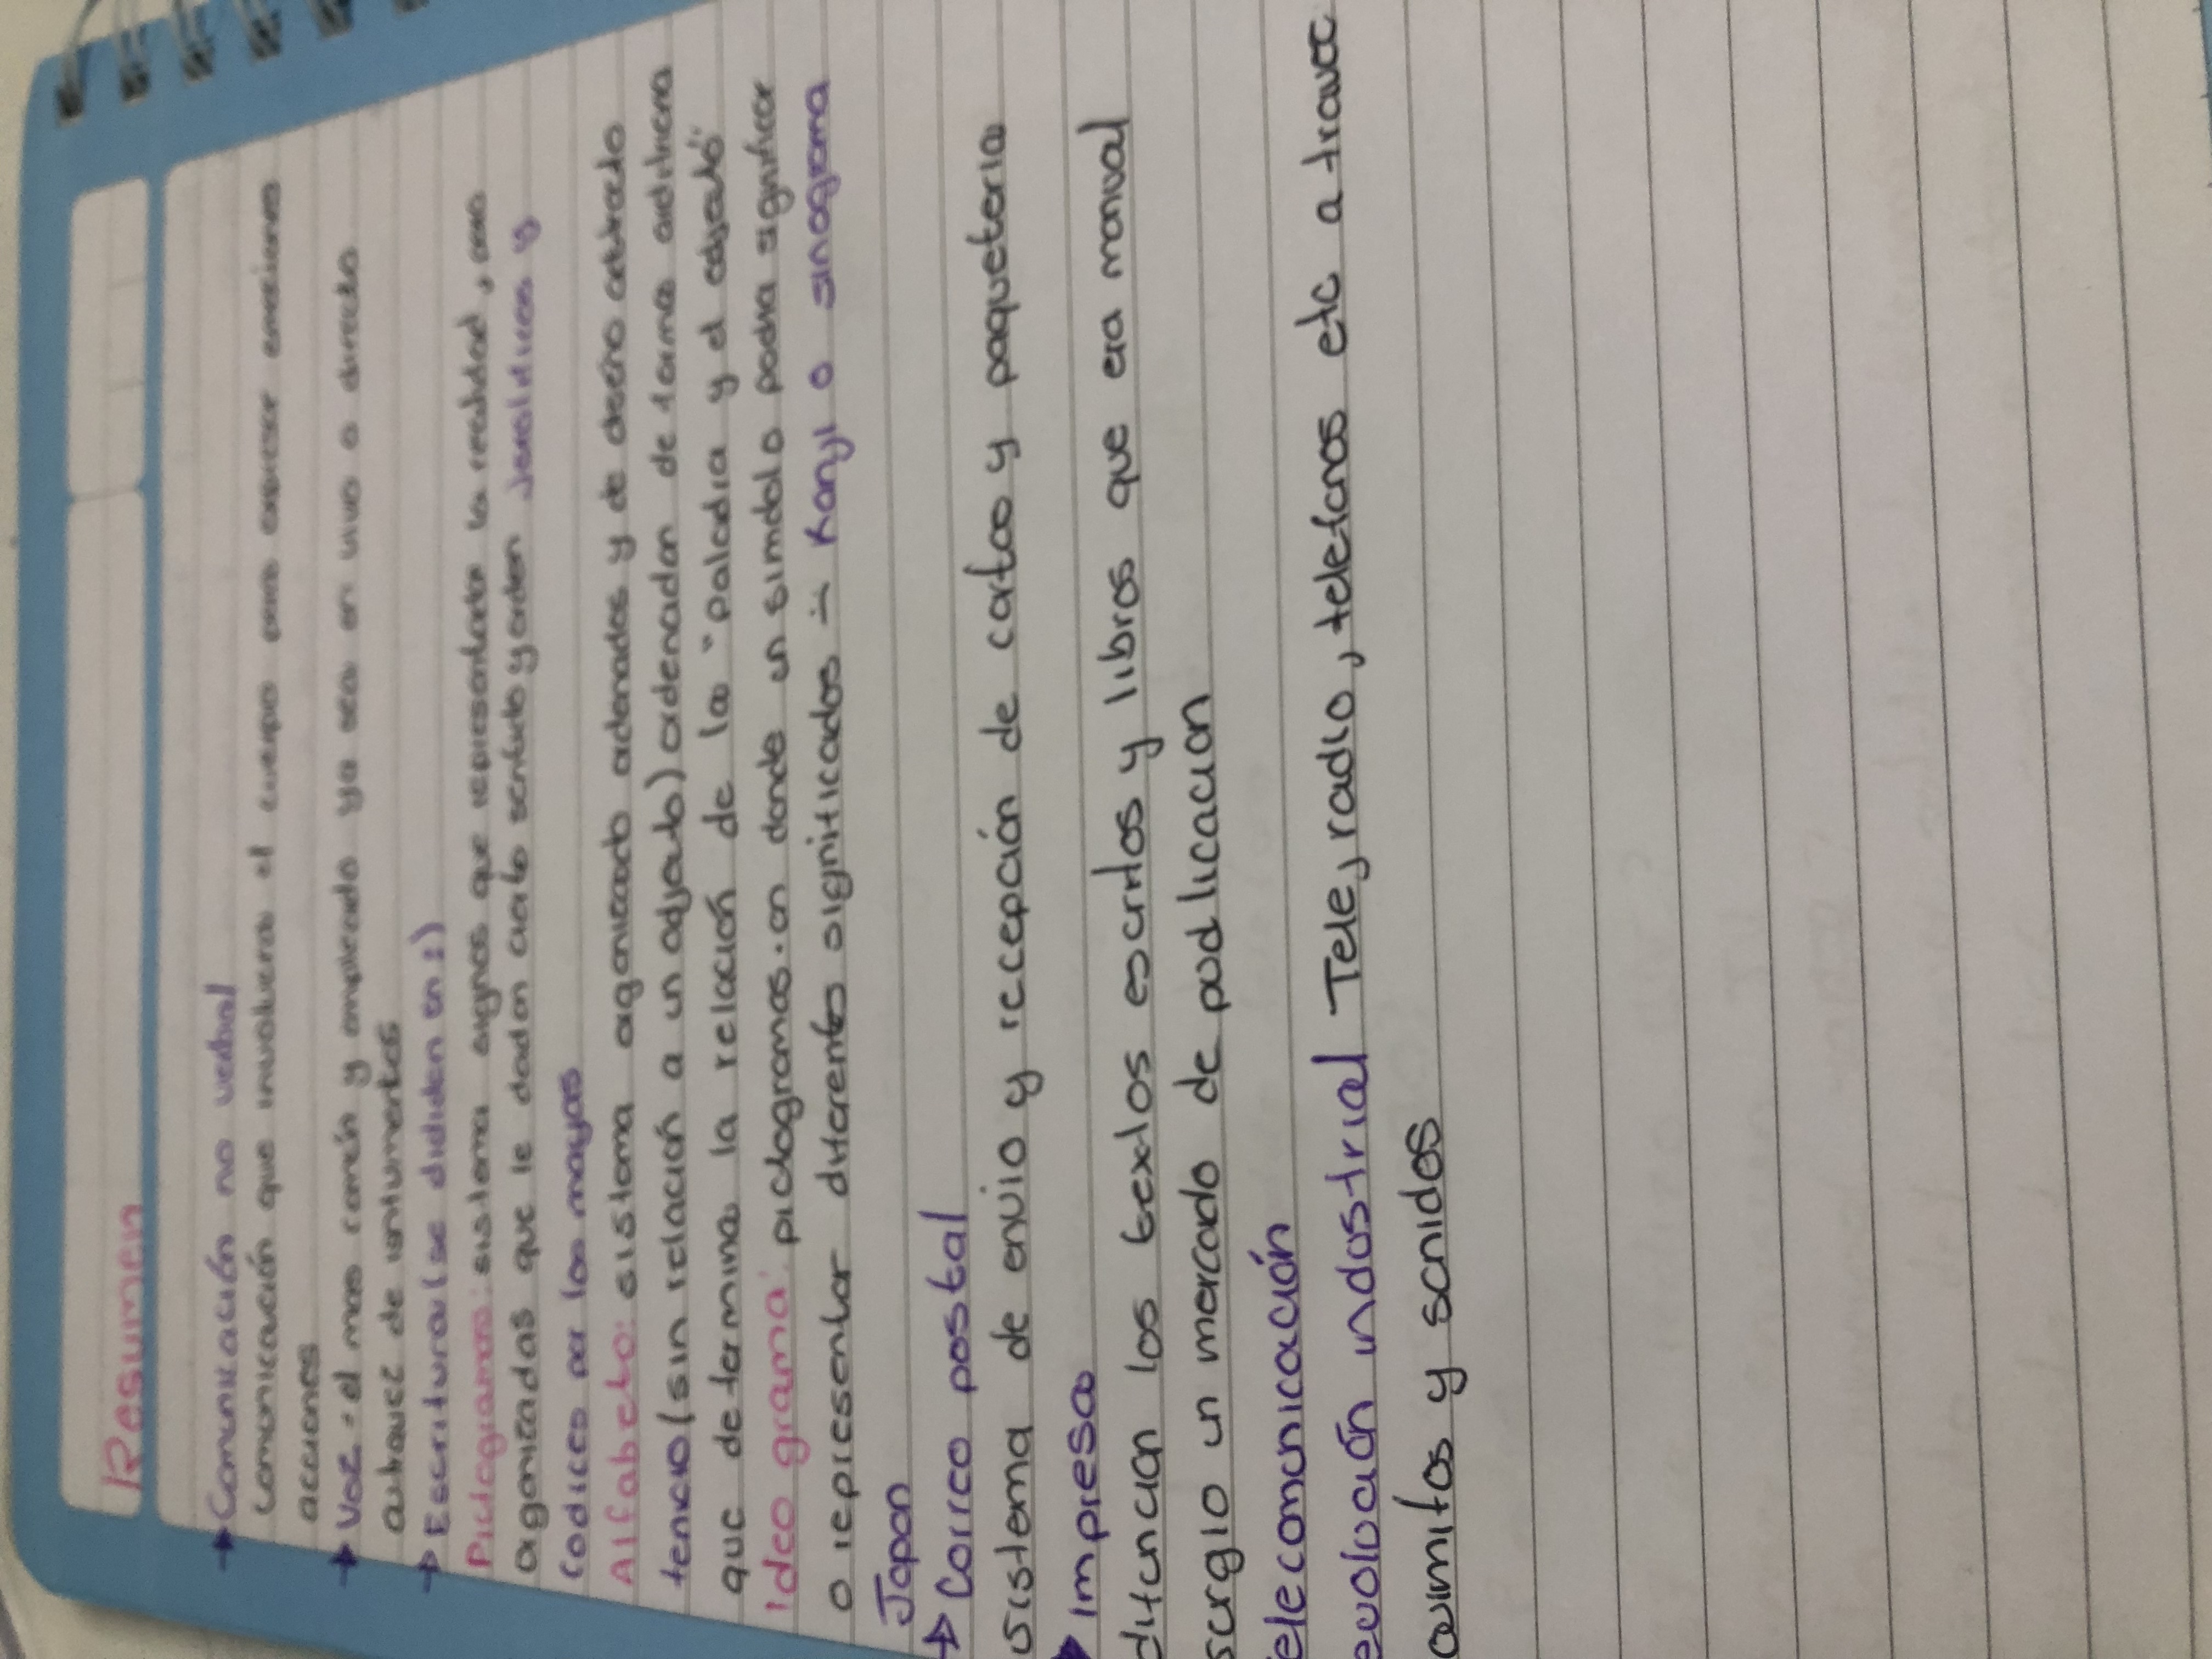 Resumen
→ Comunicación no verbal
Comunicación que involucra el cuerpo para expresar emociones
acciones
→ Voz = el mas común y empleado ya sea en vivo o directo
atraves de intrumentos
→ Escritura (se dividen en:)
Pictogramas: sistema signos que representaba la realidad,
organizadas que le daban cierto sentido y orden Jeroglificos y
Codices por los mayas
Alfabeto: sistema organizado ordenados y de diseño abstracto
tencio (sin relación a un objeto) ordenadan de forma arbitrera
que determina la relación de la "palabra y el objeto"
Ideo grama: pictogramas. en donde un simbolo podria significar
o representar diferentes significados ∹ Kanyi o sinograma
Japon
→ Correo postal
sistema de envio y recepción de cartas y paqueteria
→ Impreso
difuncian los textos escritos y libros que era manual
surgio un mercado de publicacion
elecomunicación
evolución industrial Tele, radio, telefonos etc a travez
y sonidos